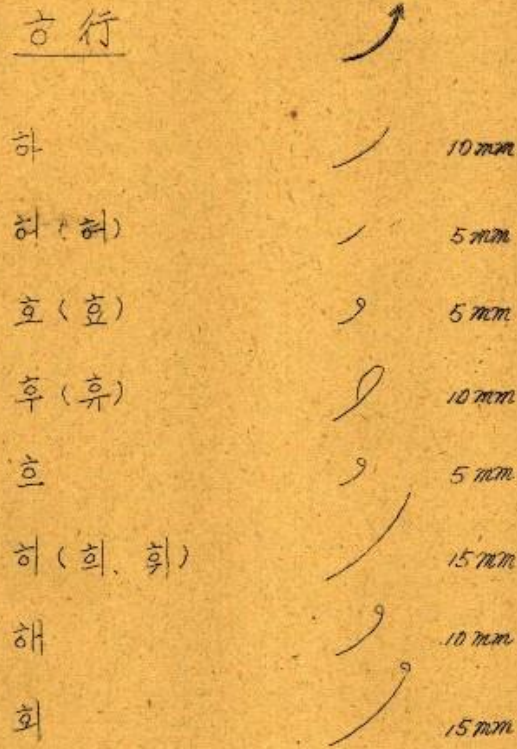 ㅎ行
하 10mm
허(혀) 5mm
호(효) 5mm
후(휴) 10mm
흐 5mm
히(희、휘) 15mm
해 10mm
회 15mm